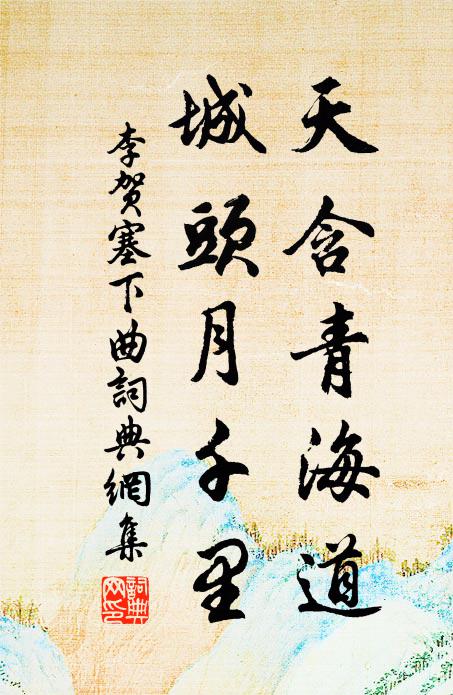 天含青海道
城頭月千里
李賀塞下曲詞典網集
詞典